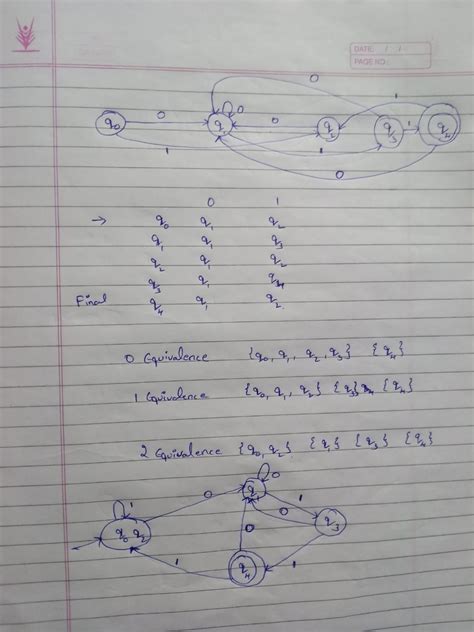 DATE: / /
PAGE NO.:
0
0 0 0 1
q0 q1 q2 q3 1 q4
1 1
0
0 1
→ q0 q1 q2
q1 q1 q3
q2 q1 q2
q3 q1 q4
Final q4 q1 q2
0 Equivalence {q0, q1, q2, q3} {q4}
1 Equivalence {q0, q1, q2} {q3} {q4}
2 Equivalence {q0, q2} {q1} {q3} {q4}
0
1 0 q1 1
0
q0 q2 0 q3
1 q4 1